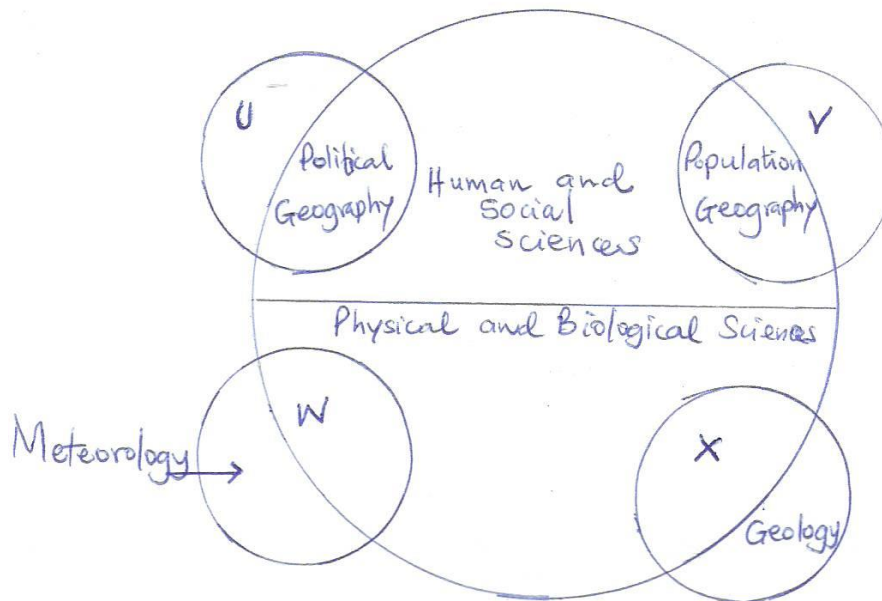 U
Political
Geography
Human and
Social
Sciences
V
Population
Geography
Physical and Biological Sciences
W
Meteorology
X
Geology